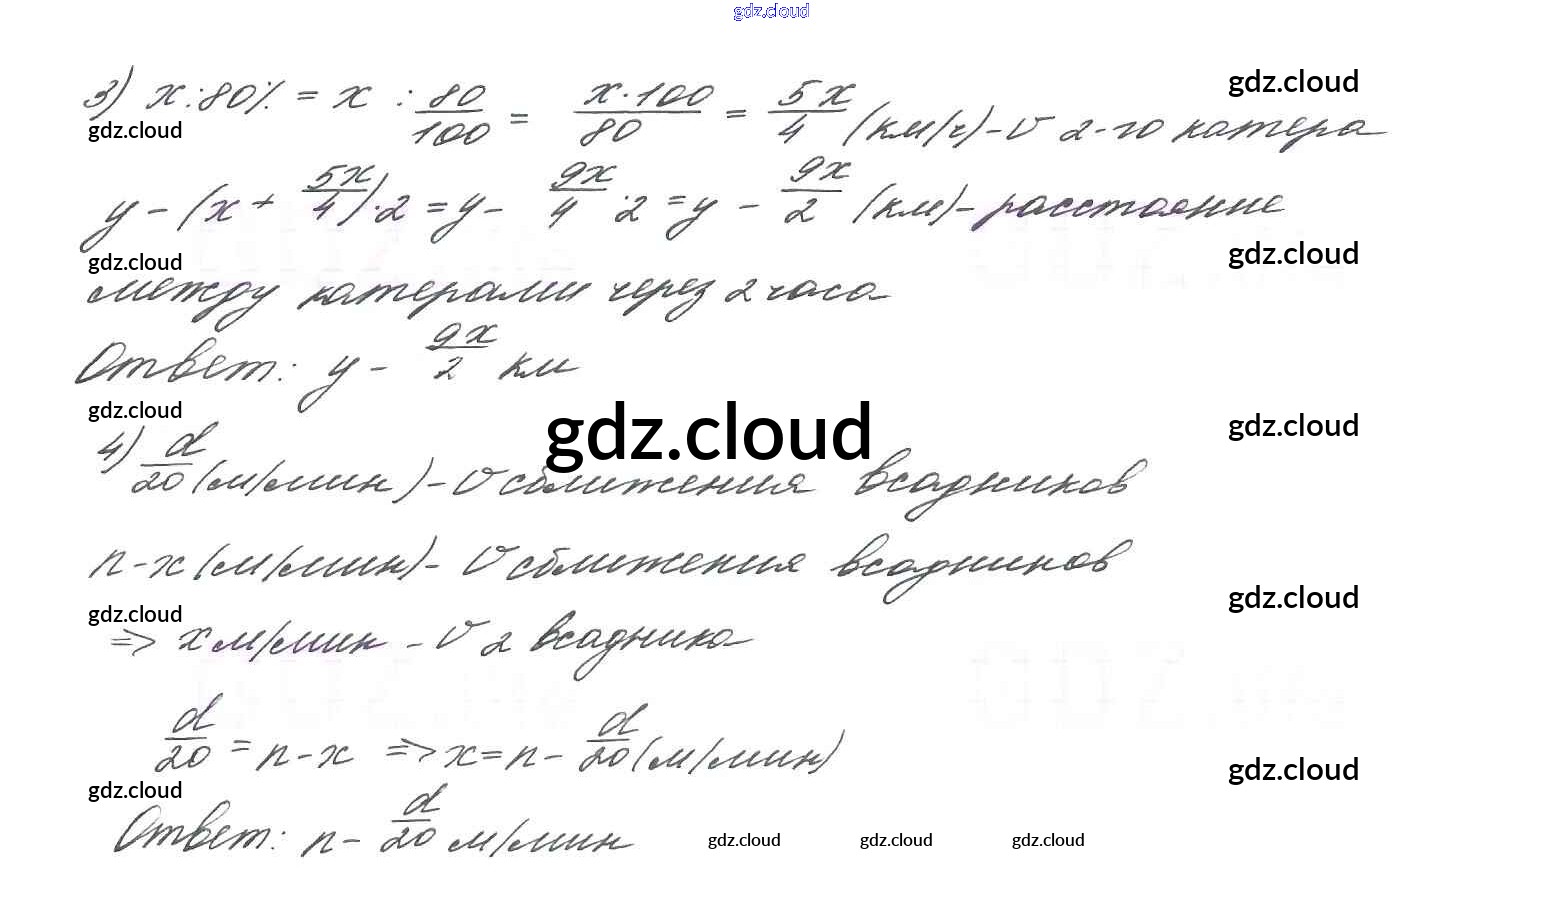 gdz.cloud
3) x : 80% = x : 80/100 = x·100/80 = 5x/4 (км/ч) - v 2-го катера
gdz.cloud
gdz.cloud
y - (x + 5x/4)·2 = y - 9x/4 · 2 = y - 9x/2 (км) - расстояние
gdz.cloud
gdz.cloud
между катерами через 2 часа
Ответ: y - 9x/2 км
gdz.cloud
gdz.cloud
gdz.cloud
4) d/20 (м/мин) - v сближения всадников
n - x (м/мин) - v сближения всадников
gdz.cloud
gdz.cloud
=> x м/мин - v 2 всадника
d/20 = n - x => x = n - d/20 (м/мин)
gdz.cloud
gdz.cloud
Ответ: n - d/20 м/мин
gdz.cloud gdz.cloud gdz.cloud